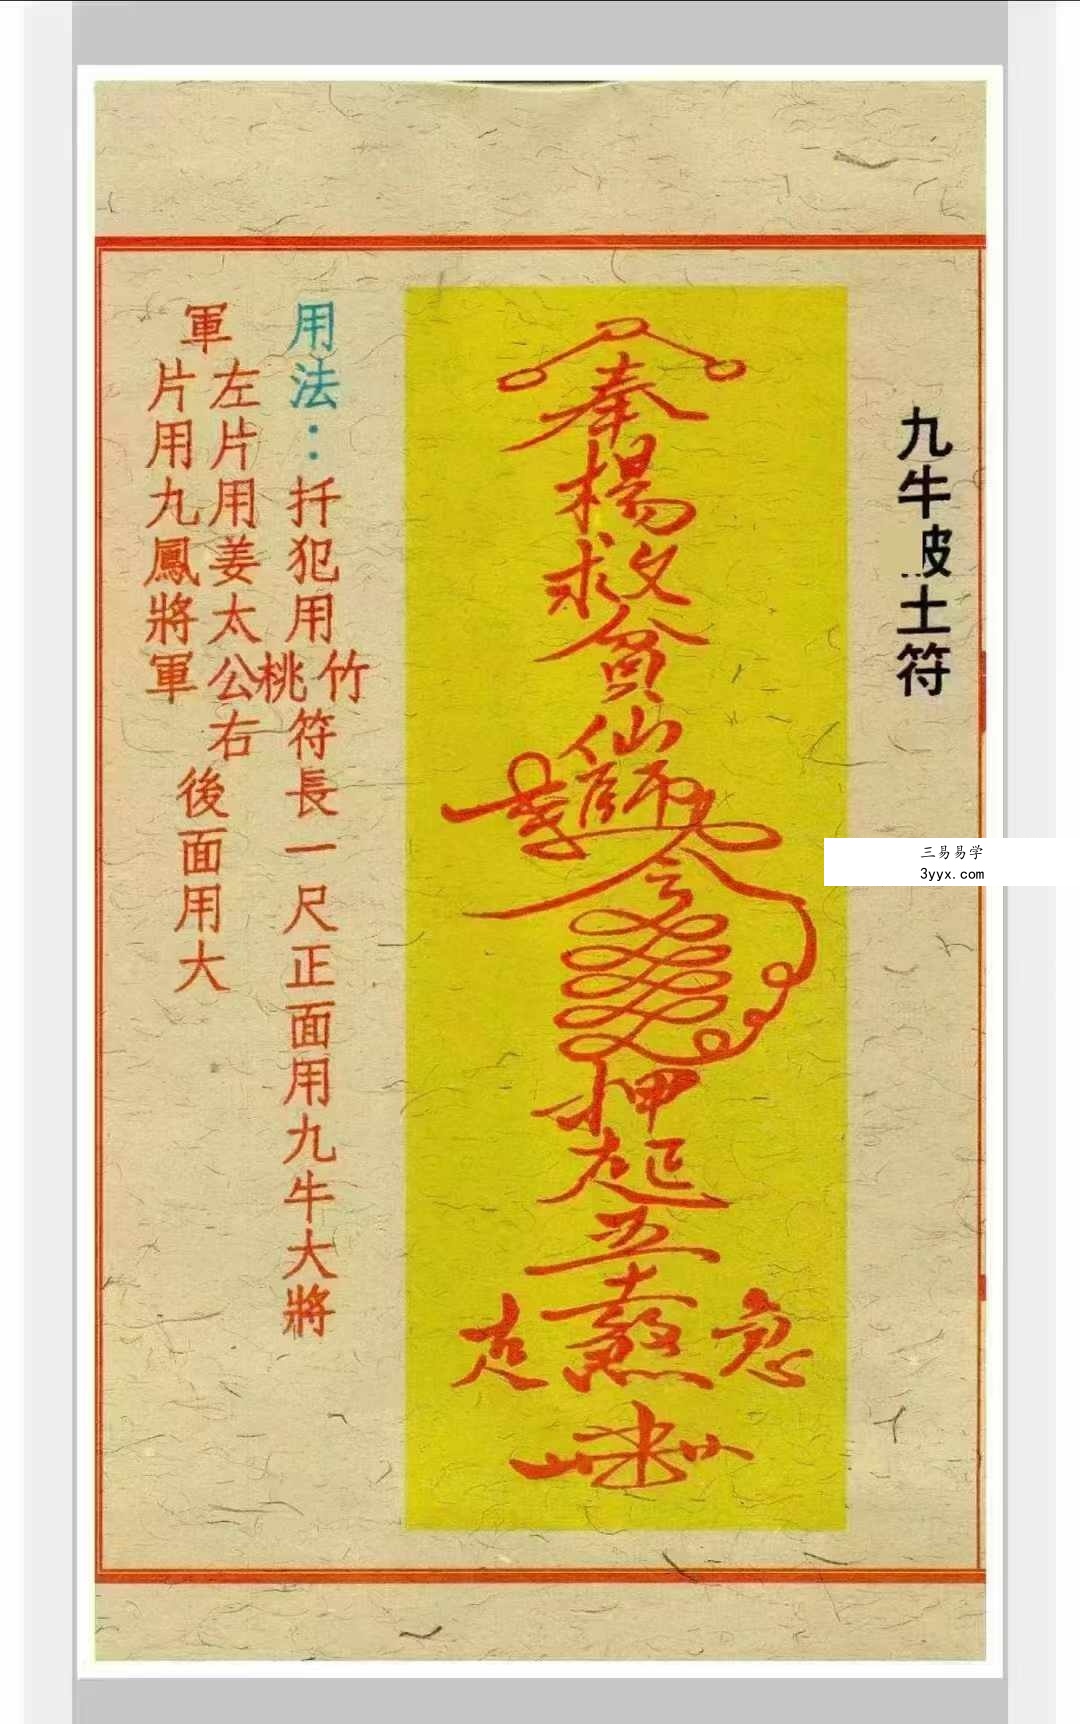 九牛破土符
三易易学
3yyx.com
奉楊救貧仙師令押起五煞
用法：扦犯用竹桃符長一尺正面用九牛大將
軍
左片用姜太公右
片用九鳳將軍
後面用大